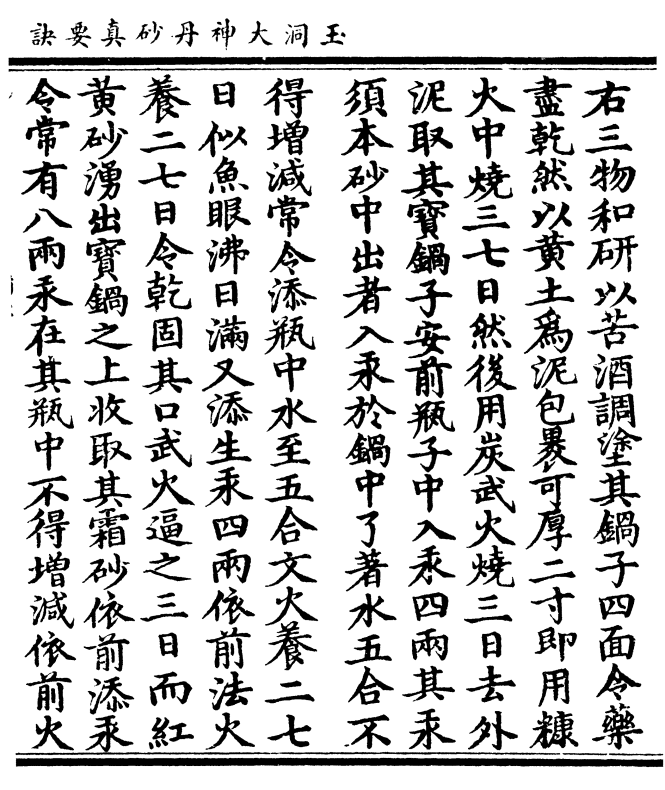 玉洞大神丹砂真要訣
右三物和研以苦酒調塗其鍋子四面令藥
盡乾然以黃土爲泥包裹可厚二寸即用糠
火中燒三七日然後用炭武火燒三日去外
泥取其寶鍋子安前瓶子中入汞四兩其汞
須本砂中出者入汞於鍋中了著水五合不
得增減常令添瓶中水至五合文火養二七
日似魚眼沸日滿又添生汞四兩依前法火
養二七日令乾固其口武火逼之三日而紅
黃砂湧出寶鍋之上收取其霜砂依前添汞
令常有八兩汞在其瓶中不得增減依前火